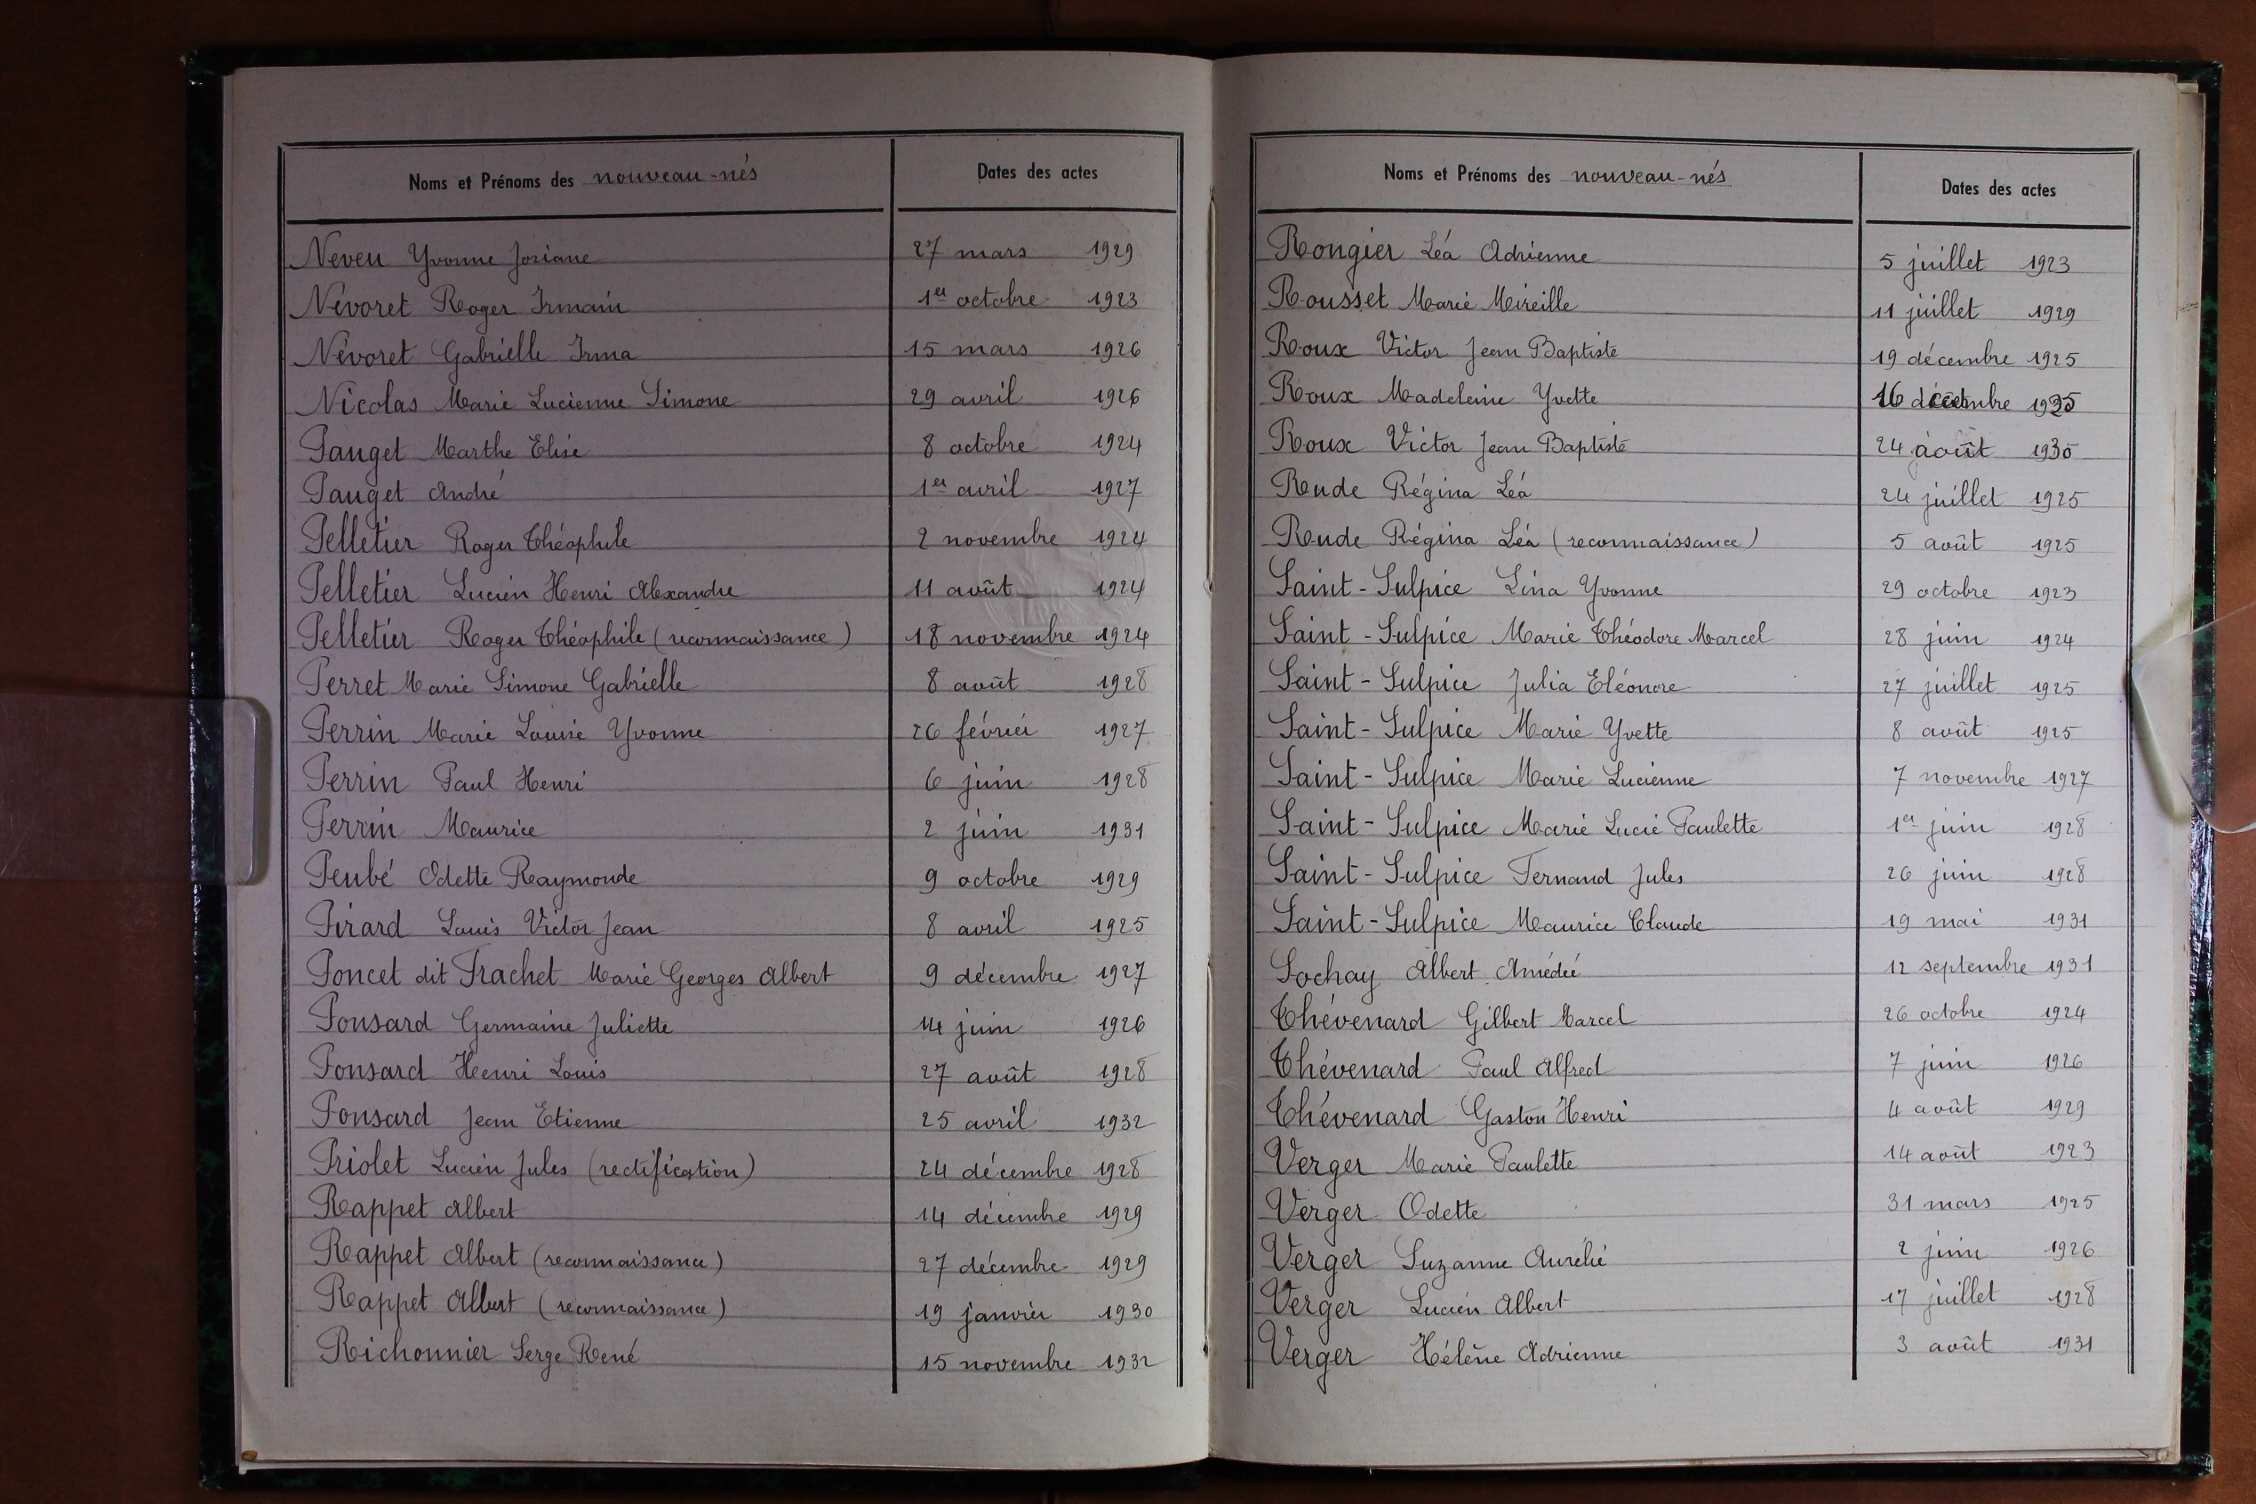 Noms et Prénoms des nouveau-nés Dates des actes
Neveu Yvonne Josiane 27 mars 1929
Névoret Roger Irmain 1er octobre 1923
Névoret Gabrielle Irma 15 mars 1926
Nicolas Marie Lucienne Simone 29 avril 1926
Pauget Marthe Elise 8 octobre 1924
Pauget André 1er avril 1927
Pelletier Roger Théophile 2 novembre 1924
Pelletier Lucien Henri Alexandre 11 août 1924
Pelletier Roger Théophile (reconnaissance) 18 novembre 1924
Perret Marie Simone Gabrielle 8 août 1928
Perrin Marie Louise Yvonne 26 février 1927
Perrin Paul Henri 6 juin 1928
Perrin Maurice 2 juin 1931
Peubé Odette Raymonde 9 octobre 1929
Pirard Louis Victor Jean 8 avril 1925
Poncet dit Frachet Marie Georges Albert 9 décembre 1927
Ponsard Germaine Juliette 14 juin 1926
Ponsard Henri Louis 27 août 1928
Ponsard Jean Etienne 25 avril 1932
Priolet Lucien Jules (rectification) 24 décembre 1928
Rappet Albert 14 décembre 1929
Rappet Albert (reconnaissance) 27 décembre 1929
Rappet Albert (reconnaissance) 19 janvier 1930
Richonnier Serge René 15 novembre 1932
Noms et Prénoms des nouveau-nés Dates des actes
Rongier Léa Adrienne 5 juillet 1923
Rousset Marie Mireille 11 juillet 1929
Roux Victor Jean Baptiste 19 décembre 1925
Roux Madeleine Yvette 16 décembre
Roux Victor Jean Baptiste 24 août 1930
Rude Régina Léa 24 juillet 1925
Rude Régina Léa (reconnaissance) 5 août 1925
Saint-Sulpice Lina Yvonne 29 octobre 1923
Saint-Sulpice Marie Théodore Marcel 28 juin 1924
Saint-Sulpice Julia Eléonore 27 juillet 1925
Saint-Sulpice Marie Yvette 8 août 1925
Saint-Sulpice Marie Lucienne 7 novembre 1927
Saint-Sulpice Marie Lucie Paulette 1er juin 1928
Saint-Sulpice Fernand Jules 26 juin 1928
Saint-Sulpice Maurice Claude 19 mai 1931
Sochay Albert Amédée 12 septembre 1931
Thévenard Gilbert Marcel 26 octobre 1924
Thévenard Paul Alfred 7 juin 1926
Thévenard Gaston Henri 4 août 1929
Verger Marie Paulette 14 août 1923
Verger Odette 31 mars 1925
Verger Suzanne Aurélie 2 juin 1926
Verger Lucien Albert 17 juillet 1928
Verger Hélène Adrienne 3 août 1931